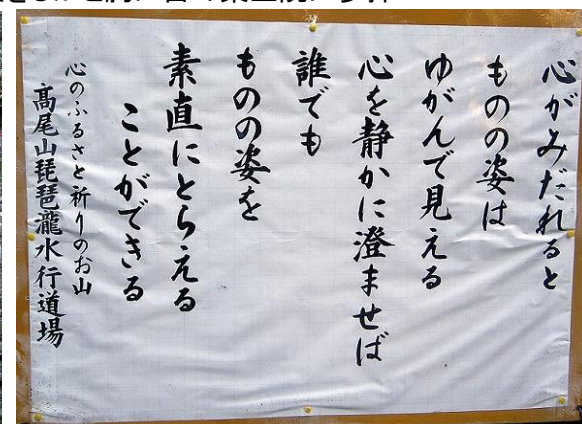 心がみだれると
ものの姿は
ゆがんで見える
心を静かに澄ませば
誰でも
ものの姿を
素直にとらえる
ことができる
心のふるさと祈りのお山
高尾山琵琶瀧水行道場